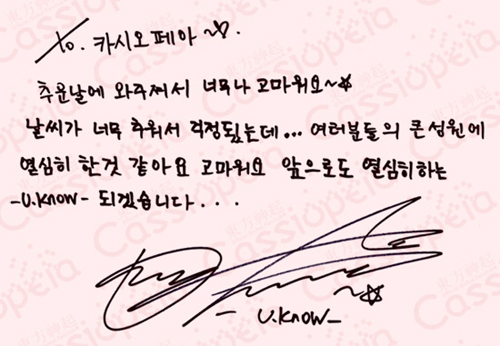 To. 카시오페아~♡.
추운날에 와주쪄서 너무나 고마워요~☆
날씨가 너무 추워서 걱정됬는데... 여러분들의 큰성원에
열심히 한것 같아요 고마워요 앞으로도 열심히하는
-U.Know- 되겠습니다...
~☆
- U.Know -
東方神起 Cassiopeia